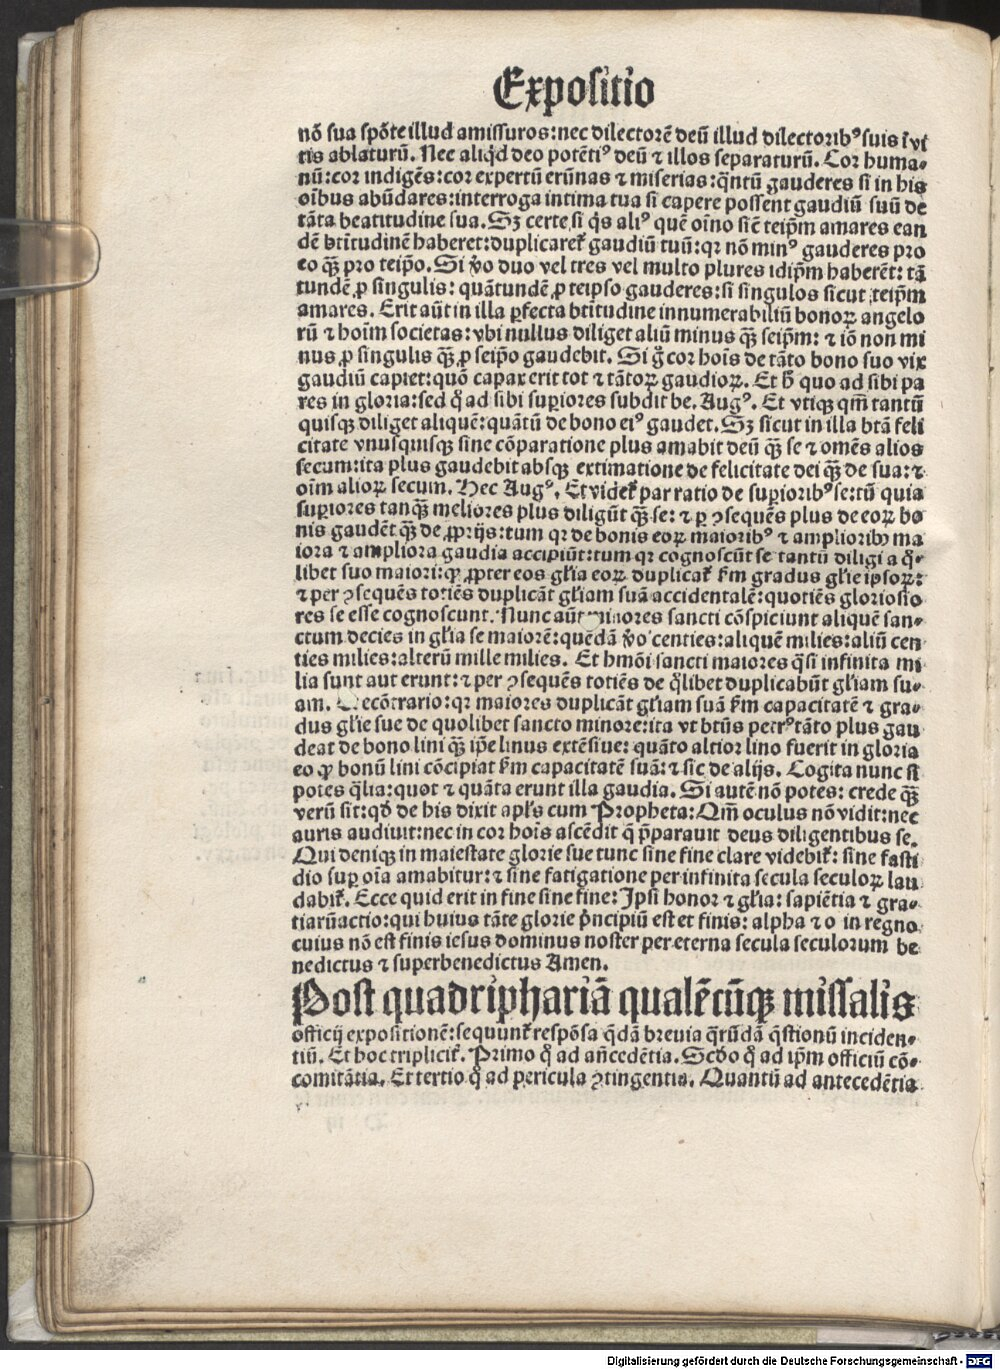 Expositio
nō sua spōte illud amissuros: nec dilectorē deū illud dilectoribꝰ suis īvi
tis ablaturū. Nec aliqͥd deo potētiꝰ deū ⁊ illos separaturū. Cor huma⸗
nū: cor indigēs: cor expertū erūnas ⁊ miserias: qͣntū gauderes si in his
oībus abūdares: interroga intima tua si capere possent gaudiū suū de
tāta beatitudine sua. Sʒ certe si qͥs aliꝰ quē oīno sic̄ teip̄m amares ean
dē btītudinē haberet: duplicaret̄ gaudiū tuū: qꝛ nō minꝰ gauderes pro
eo qͣꝫ pro teip̄o. Si v̄o duo vel tres vel multo plures idip̄m haberēt: tā
tundē ꝓ singulis: quātundē ꝓ teipso gauderes: si singulos sicut teip̄m
amares. Erit aūt in illa ꝑfecta btītudine innumerabiliū bonoꝝ angelo
rū ⁊ hoīm societas: vbi nullus diliget aliū minus qͣꝫ seip̄m: ⁊ iō non mi
nus ꝓ singulis qͣꝫ ꝓ seip̄o gaudebit. Si g̊ cor hoīs de tāto bono suo vix
gaudiū capiet: quō capax erit tot ⁊ tātoꝝ gaudioꝝ. Et h̄ quo ad sibi pa
res in gloria: sed qͦ ad sibi suꝑiores subdit be. Augꝰ. Et vtiqꝫ qm̄ tantū
quisqꝫ diliget aliquē: quātū de bono eiꝰ gaudet. Sʒ sicut in illa btā feli
citate vnusquisqꝫ sine cōparatione plus amabit deū qͣꝫ se ⁊ omēs alios
secum: ita plus gaudebit absqꝫ extimatione de felicitate dei qͣꝫ de sua: ⁊
oīm alioꝝ secum. Hec Augꝰ. Et videt̄ par ratio de suꝑioribꝰ se: tū quia
suꝑiores tanqͣꝫ meliores plus diligūt qͣꝫ se: ⁊ ꝑ ꝯsequēs plus de eoꝝ bo
nis gaudēt qͣꝫ de ꝓprijs: tum qꝛ de bonis eoꝝ maioribꝰ ⁊ amplioribꝫ ma
iora ⁊ ampliora gaudia accipiūt: tum qꝛ cognoscūt se tantū diligi a qͦ⸗
libet suo maiori: ꝙ ꝓpter eos gl̄ia eoꝝ duplicat̄ ẜm gradus gl̄ie ipsoꝝ:
⁊ per ꝯsequēs totiēs duplicāt gl̄iam suā accidentalē: quotiēs gloriosio
res se esse cognoscunt. Nunc aūt minores sancti cōspiciunt aliquē san⸗
ctum decies in gl̄ia se maiorē: quēdā v̄o centies: aliquē milies: aliū cen
ties milies: alterū mille milies. Et hmōi sancti maiores qͣsi infinita mi
lia sunt aut erunt: ⁊ per ꝯsequēs totiēs de qͦlibet duplicabūt gl̄iam su⸗
am. ecōtrario: qꝛ maiores duplicāt gl̄iam suā ẜm capacitatē ⁊ gra⸗
dus gl̄ie sue de quolibet sancto minore: ita vt btūs petrꝰ tāto plus gau
deat de bono lini qͣꝫ ip̄e linus extēsiue: quāto altior lino fuerit in gloria
eo ꝙ bonū lini cōcipiat ẜm capacitatē suā: ⁊ sic de alijs. Cogita nunc si
potes qͣlia: quot ⁊ quāta erunt illa gaudia. Si autē nō potes: crede qͣꝫ
verū sit: qd̄ de his dixit apl̄s cum Propheta: Qm̄ oculus nō vidit: nec
auris audiuit: nec in cor hoīs ascēdit q̄ p̄parauit deus diligentibus se.
Qui deniqꝫ in maiestate glorie sue tunc sine fine clare videbit̄: sine fasti
dio suꝑ oīa amabitur: ⁊ sine fatigatione per infinita secula seculoꝝ lau
dabit̄. Ecce quid erit in fine sine fine: Ipsi honor ⁊ gl̄ia: sapiētia ⁊ gra⸗
tiarūactio: qui huius tāte glorie pͥncipiū est et finis: alpha ⁊ o in regno
cuius nō est finis iesus dominus noster per eterna secula seculorum be
nedictus ⁊ superbenedictus Amen.
Post quadriphariā qualēcūqꝫ missalis
officij expositionē: sequunt̄ respōsa qͣdā breuia qͣrūdā qͣstionū inciden⸗
tiū. Et hoc triplicit̄. Primo qͦ ad an̄cedētia. Scd̄o qͦ ad ip̄m officiū cō⸗
comitātia. Et tertio qͦ ad pericula ꝯtingentia. Quantū ad antecedētia
Digitalisierung gefördert durch die Deutsche Forschungsgemeinschaft - DFG